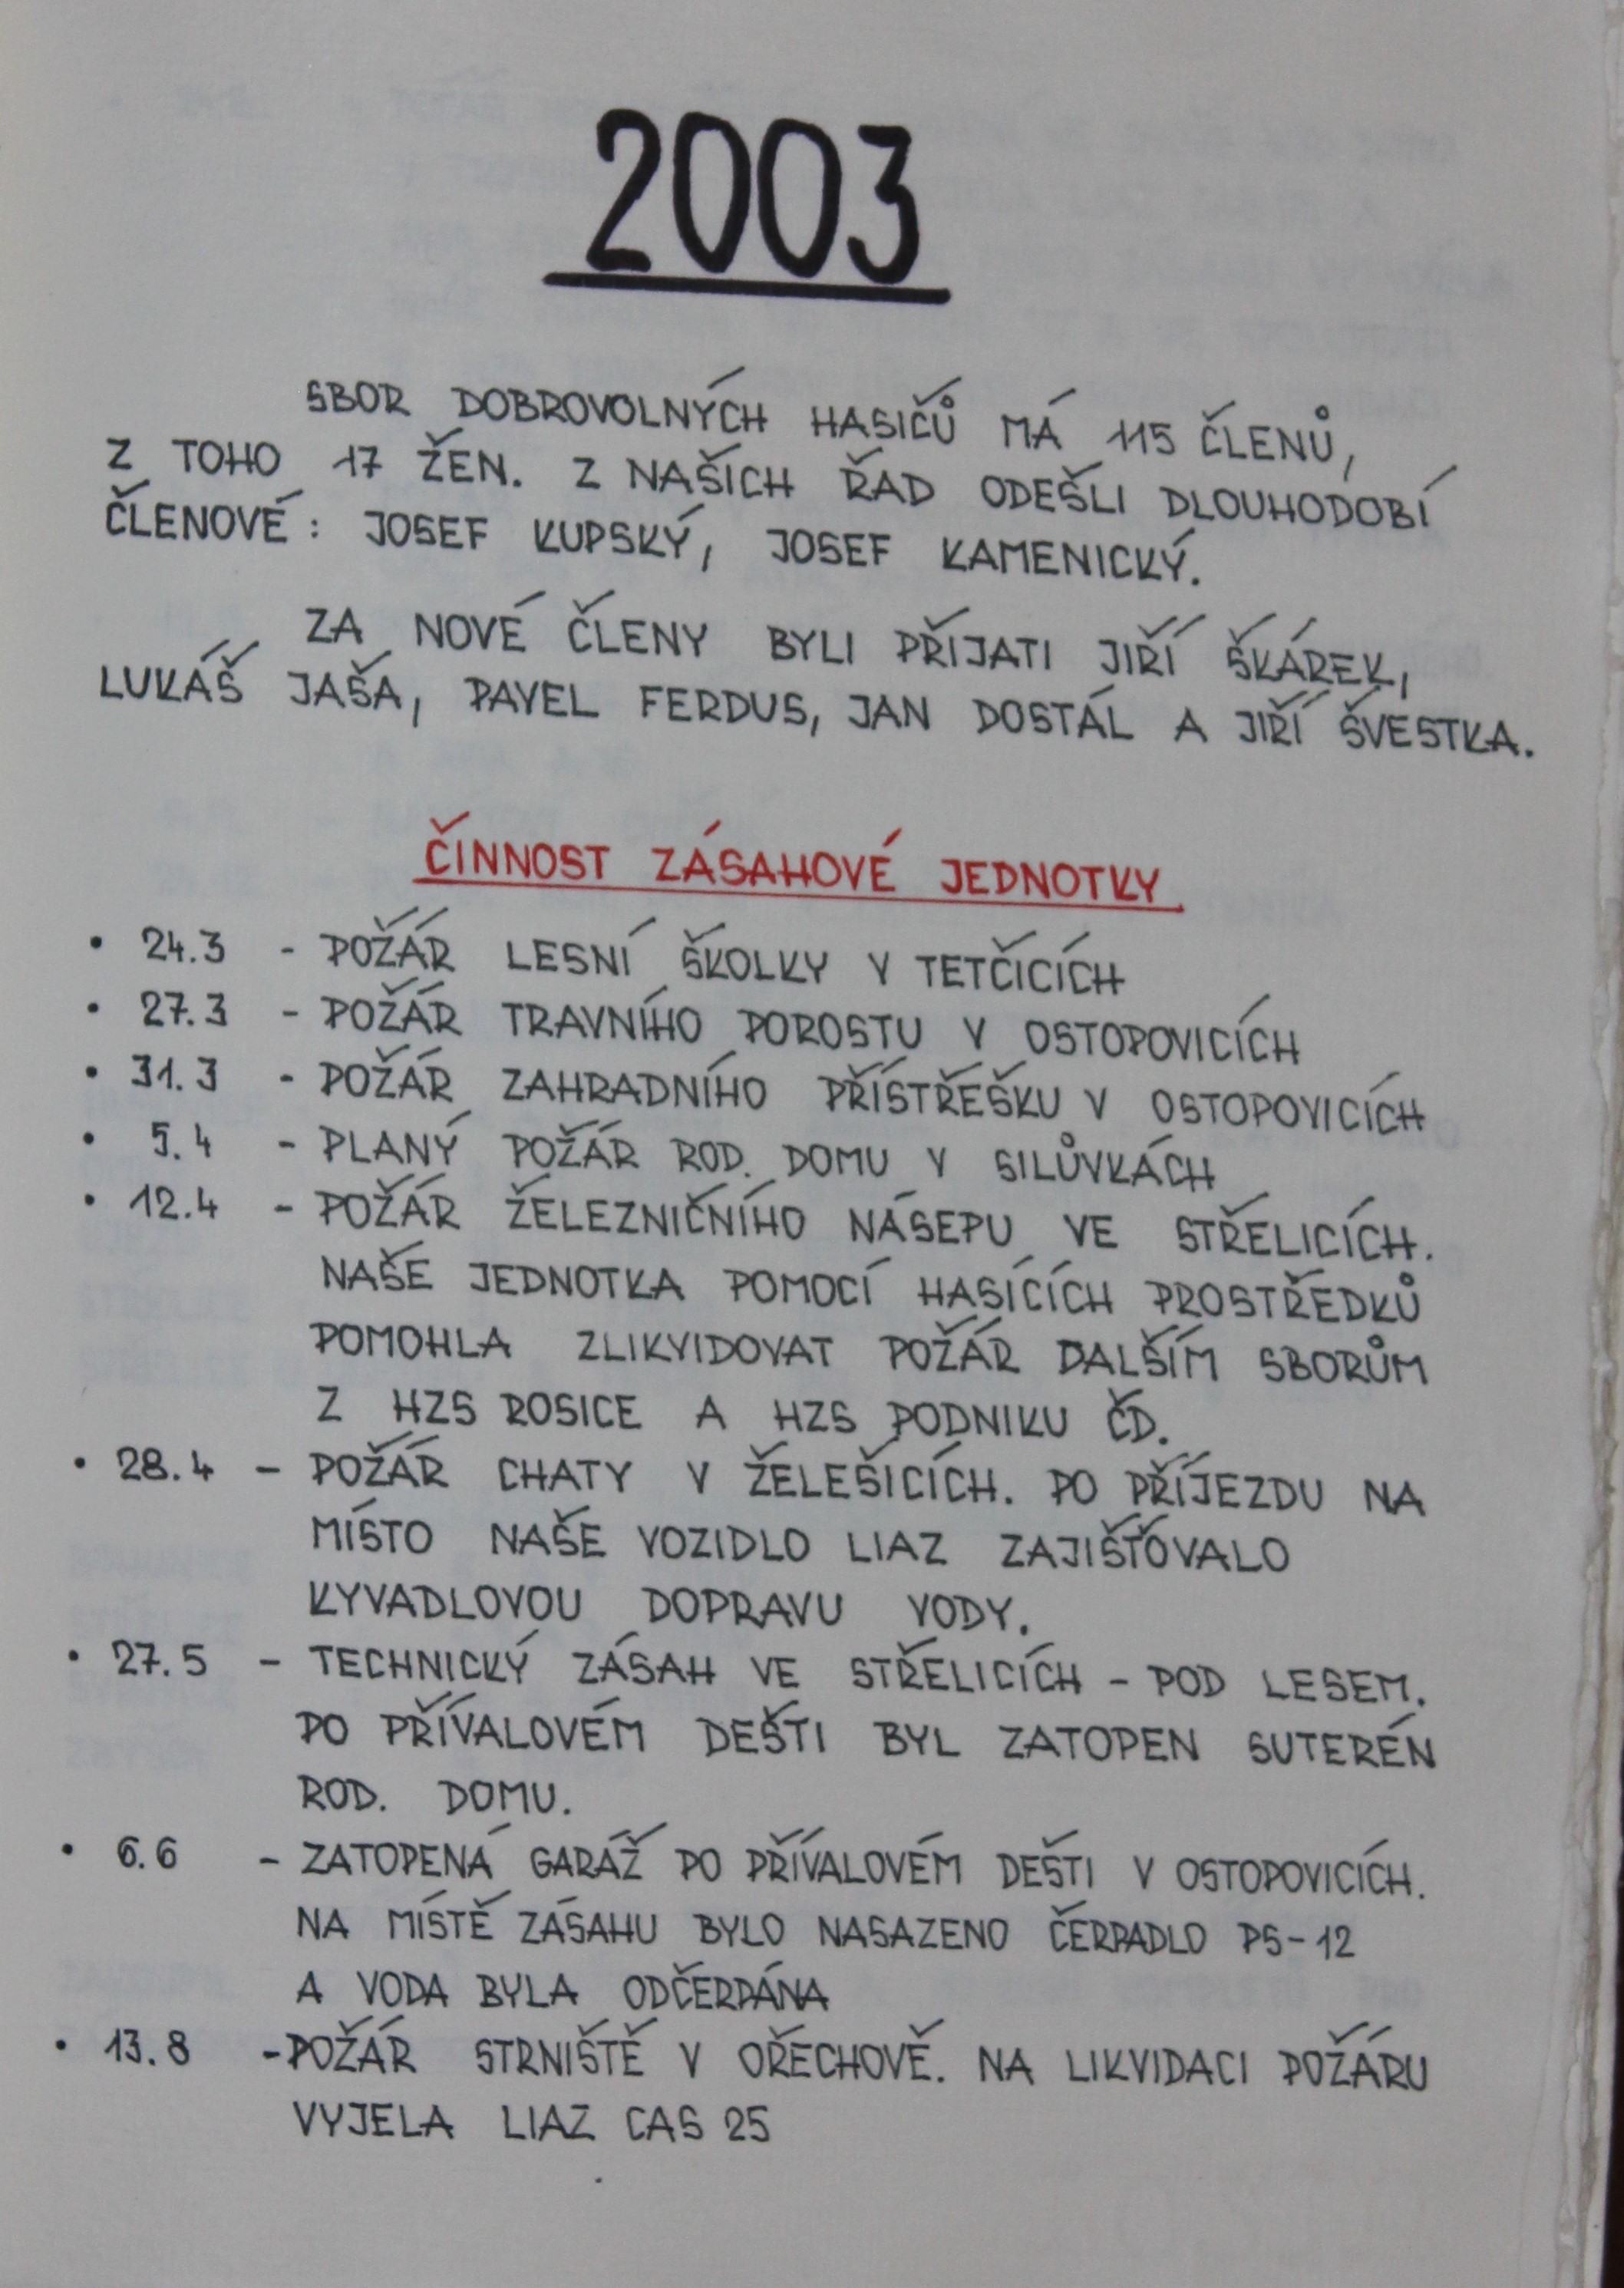 2003
SBOR DOBROVOLNÝCH HASIČŮ MÁ 115 ČLENŮ,
Z TOHO 17 ŽEN. Z NAŠICH ŘAD ODEŠLI DLOUHODOBÍ
ČLENOVÉ: JOSEF KUPSKÝ, JOSEF KAMENICKÝ.
ZA NOVÉ ČLENY BYLI PŘIJATI JIŘÍ ŠKÁREK,
LUKÁŠ JAŠA, PAVEL FERDUS, JAN DOSTÁL A JIŘÍ ŠVESTKA.
ČINNOST ZÁSAHOVÉ JEDNOTKY
• 24.3 - POŽÁR LESNÍ ŠKOLKY V TETČICÍCH
• 27.3 - POŽÁR TRAVNÍHO POROSTU V OSTOPOVICÍCH
• 31.3 - POŽÁR ZAHRADNÍHO PŘÍSTŘEŠKU V OSTOPOVICÍCH
• 5.4 - PLANÝ POŽÁR ROD. DOMU V SILŮVKÁCH
• 12.4 - POŽÁR ŽELEZNIČNÍHO NÁSEPU VE STŘELICÍCH.
NAŠE JEDNOTKA POMOCÍ HASÍCÍCH PROSTŘEDKŮ
POMOHLA ZLIKVIDOVAT POŽÁR DALŠÍM SBORŮM
Z HZS ROSICE A HZS PODNIKU ČD.
• 28.4 - POŽÁR CHATY V ŽELEŠICÍCH. PO PŘÍJEZDU NA
MÍSTO NAŠE VOZIDLO LIAZ ZAJIŠŤOVALO
KYVADLOVOU DOPRAVU VODY.
• 27.5 - TECHNICKÝ ZÁSAH VE STŘELICÍCH - POD LESEM.
PO PŘÍVALOVÉM DEŠTI BYL ZATOPEN SUTERÉN
ROD. DOMU.
• 6.6 - ZATOPENÁ GARÁŽ PO PŘÍVALOVÉM DEŠTI V OSTOPOVICÍCH.
NA MÍSTĚ ZÁSAHU BYLO NASAZENO ČERPADLO PS-12
A VODA BYLA ODČERPÁNA
• 13.8 - POŽÁR STRNIŠTĚ V OŘECHOVĚ. NA LIKVIDACI POŽÁRU
VYJELA LIAZ CAS 25